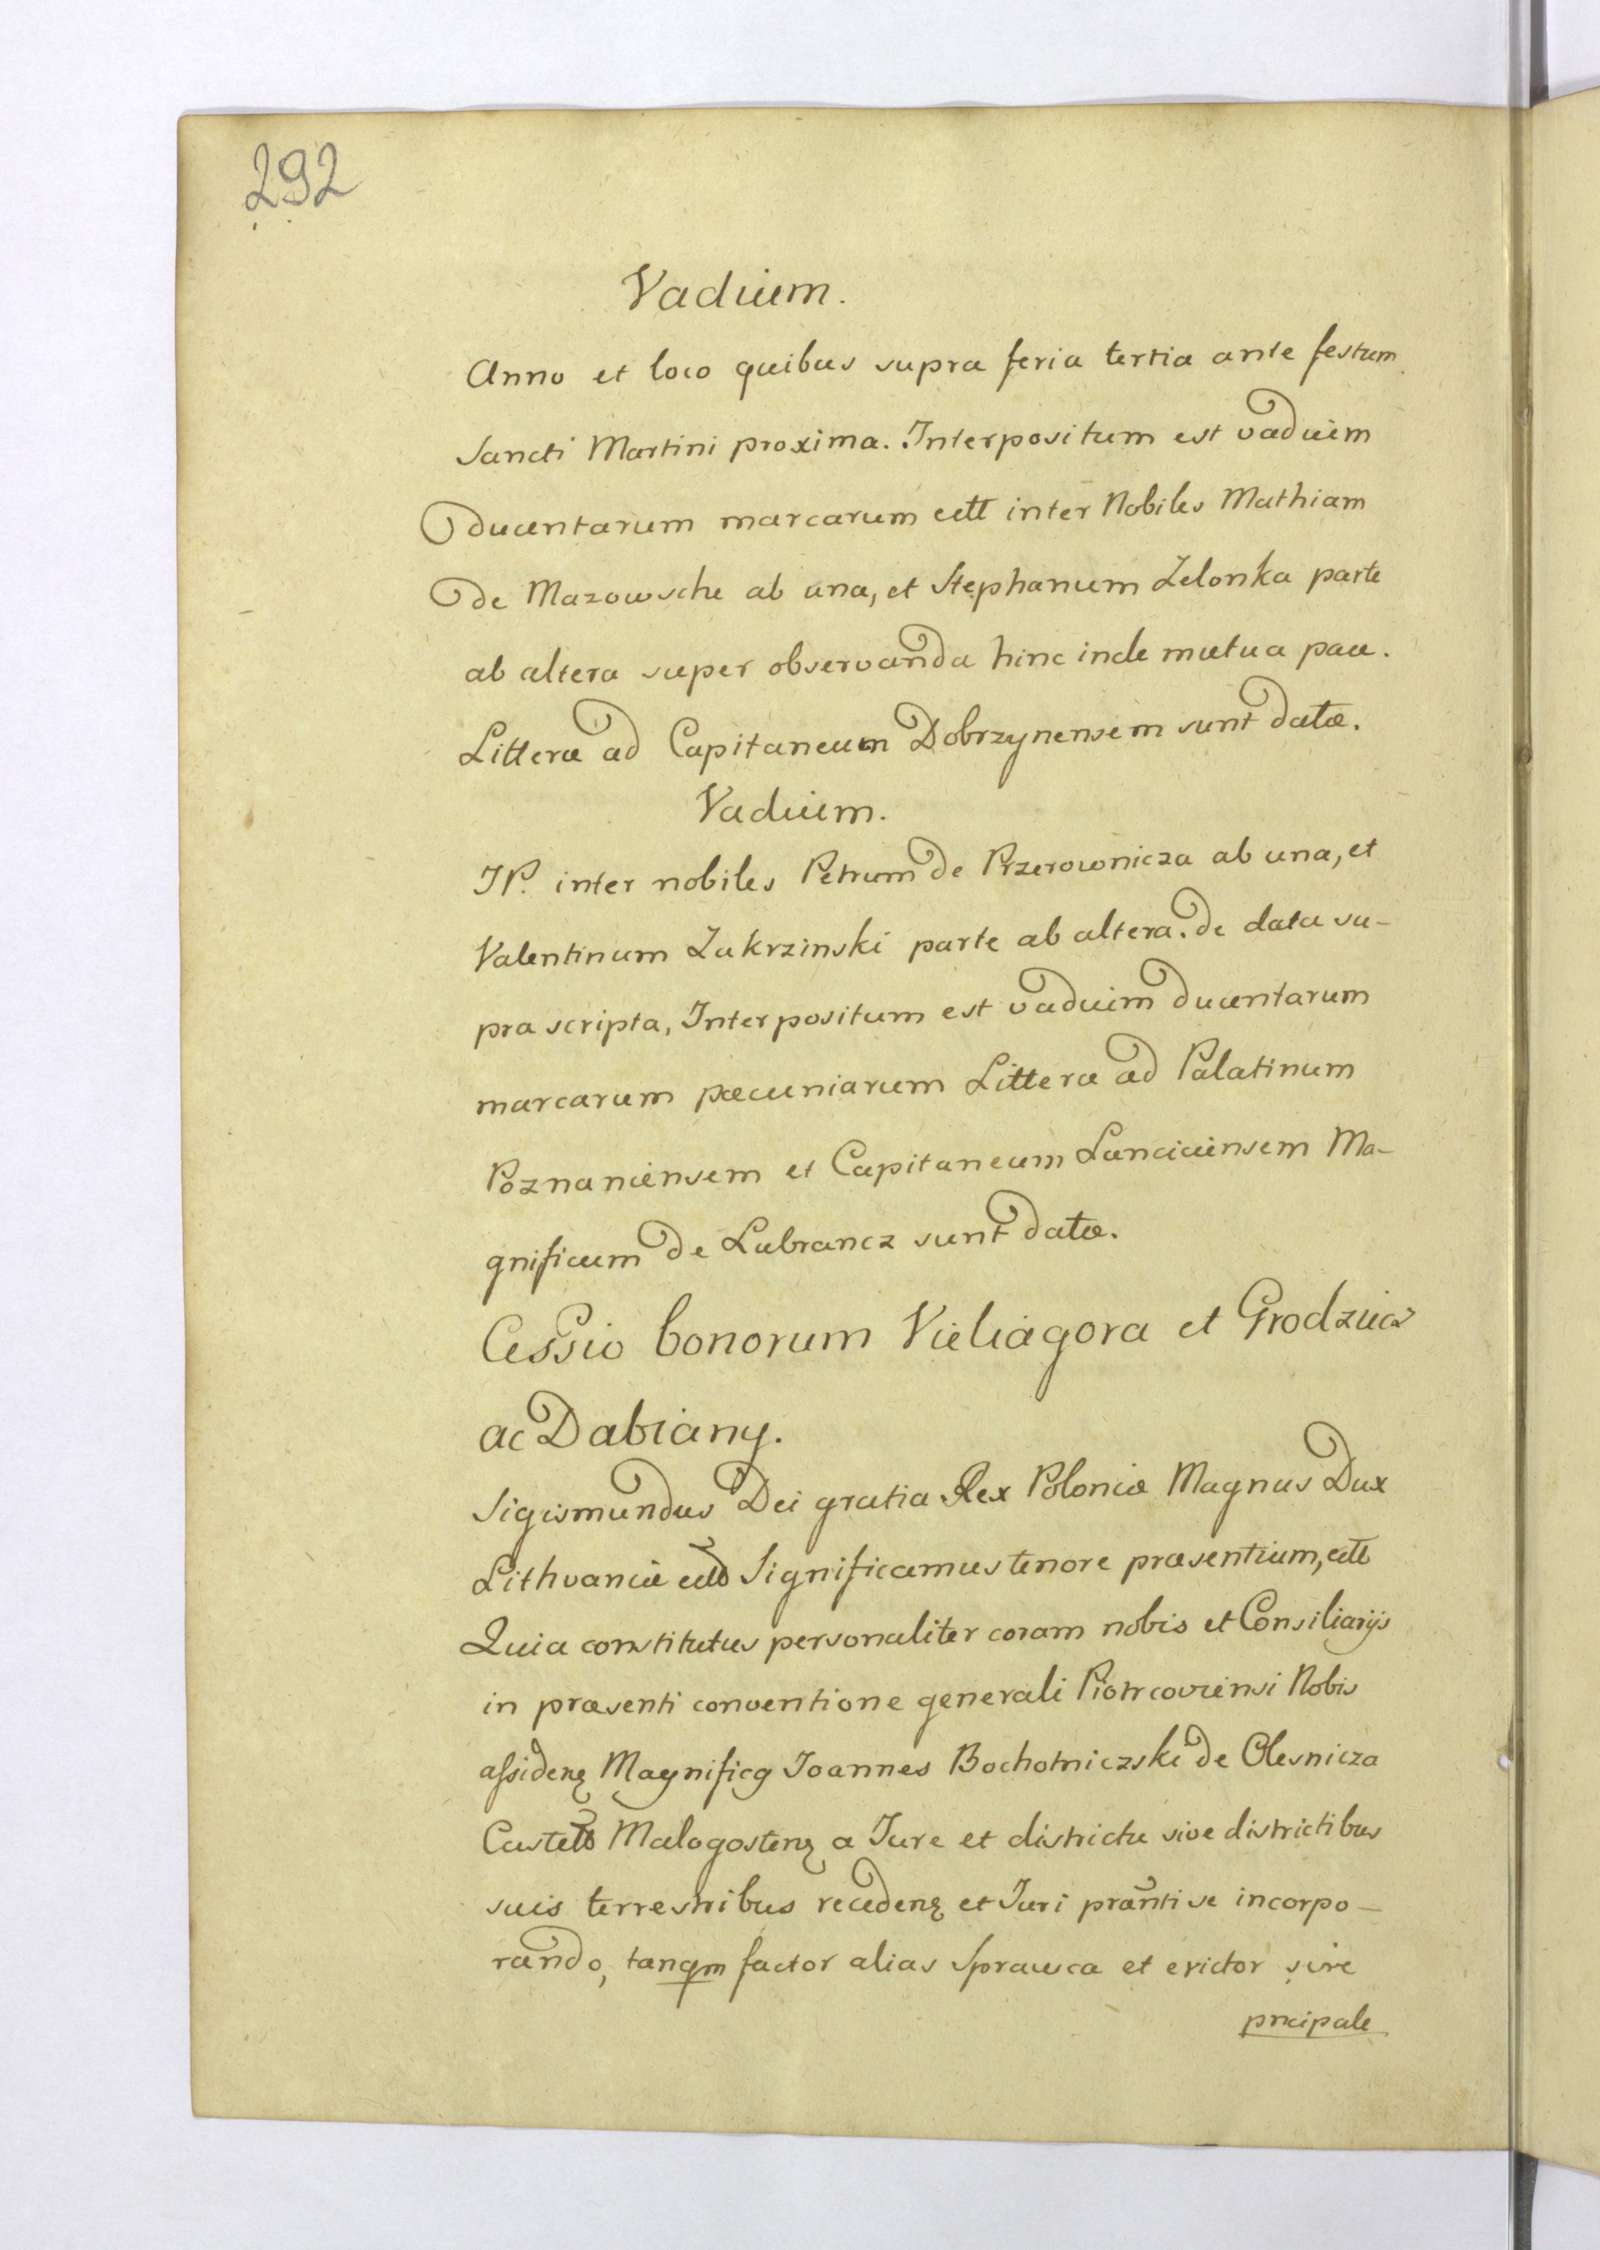 292
Vadium.
Anno et loco quibus supra feria tertia ante festum
Sancti Martini proxima. Interpositum est vadium
ducentarum marcarum ett inter Nobiles Mathiam
de Mazowsche ab una, et Stephanum Zelonka parte
ab altera super observanda hinc inde mutua pace.
Litteræ ad Capitaneum Dobrzynensem sunt datæ.
Vadium.
IP. inter nobiles Petrum de Przerownicza ab una, et
Valentinum Zakrzinski parte ab altera. de data su-
pra scripta, Interpositum est vadium ducentarum
marcarum pæcuniarum Litteræ ad Palatinum
Poznaniensem et Capitaneum Lanciciensem Ma-
gnificum de Lubrancz sunt datæ.
Cessio bonorum Vieliagora et Grodzicz
ac Dabiany.
Sigismundus Dei gratia Rex Poloniæ Magnus Dux
Lithvaniæ Significamus tenore præsentium,
Quia constitutus personaliter coram nobis et Consiliarijs
in præsenti conventione generali Piotrcoviensi Nobis
assidenꝫ Magnificꝫ Joannes Bochotniczski de Olesnicza
Castell Malogostenꝫ a Jure et districtu sive districtibus
suis terrestribus recedenꝫ et Juri pranti se incorpo-
rando, tanqm factor alias Sprawca et evictor sive
pncipale